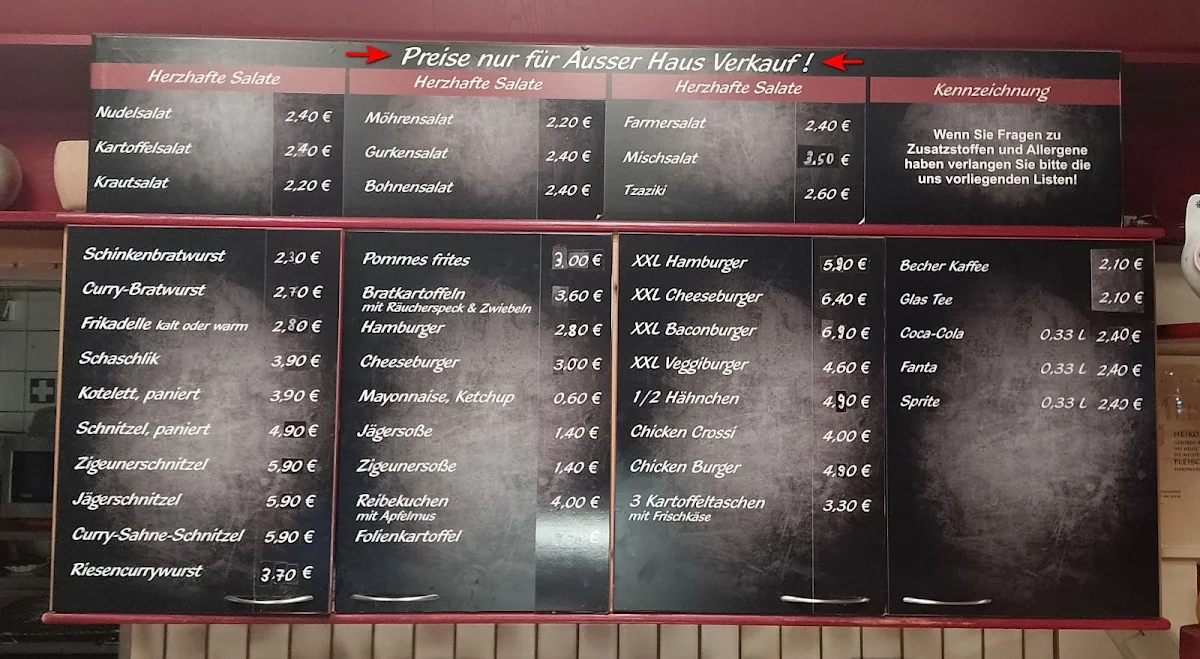 Preise nur für Ausser Haus Verkauf !
Herzhafte Salate
Nudelsalat 2,40 €
Kartoffelsalat 2,40 €
Krautsalat 2,20 €
Herzhafte Salate
Möhrensalat 2,20 €
Gurkensalat 2,40 €
Bohnensalat 2,40 €
Herzhafte Salate
Farmersalat 2,40 €
Mischsalat 3.50 €
Tzaziki 2,60 €
Kennzeichnung
Wenn Sie Fragen zu
Zusatzstoffen und Allergene
haben verlangen Sie bitte die
uns vorliegenden Listen!
Schinkenbratwurst 2,30 €
Curry-Bratwurst 2,70 €
Frikadelle kalt oder warm 2,80 €
Schaschlik 3,90 €
Kotelett, paniert 3,90 €
Schnitzel, paniert 4,90 €
Zigeunerschnitzel 5,90 €
Jägerschnitzel 5,90 €
Curry-Sahne-Schnitzel 5,90 €
Riesencurrywurst 3.70 €
Pommes frites 3,00 €
Bratkartoffeln 3,60 €
mit Räucherspeck & Zwiebeln
Hamburger 2,80 €
Cheeseburger 3,00 €
Mayonnaise, Ketchup 0,60 €
Jägersoße 1,40 €
Zigeunersoße 1,40 €
Reibekuchen 4,00 €
mit Apfelmus
Folienkartoffel
XXL Hamburger 5,90 €
XXL Cheeseburger 6,40 €
XXL Baconburger 6,90 €
XXL Veggiburger 4,60 €
1/2 Hähnchen 4,90 €
Chicken Crossi 4,00 €
Chicken Burger 4,90 €
3 Kartoffeltaschen 3,30 €
mit Frischkäse
Becher Kaffee 2,10 €
Glas Tee 2,10 €
Coca-Cola 0,33 L 2,40 €
Fanta 0,33 L 2,40 €
Sprite 0,33 L 2,40 €